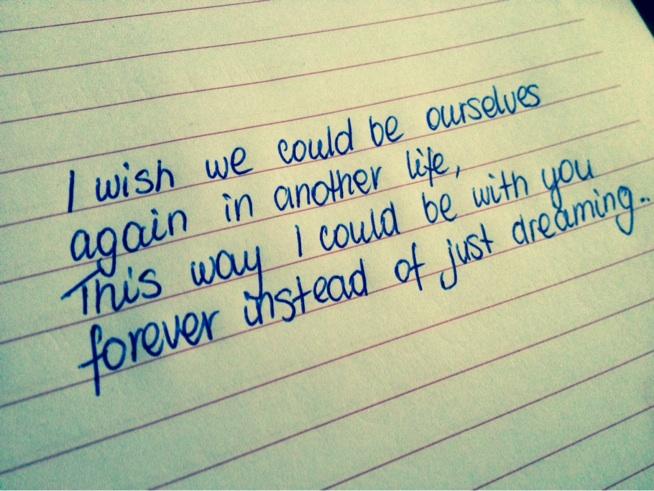 I wish we could be ourselves
again in another life,
This way I could be with you
forever instead of just dreaming..